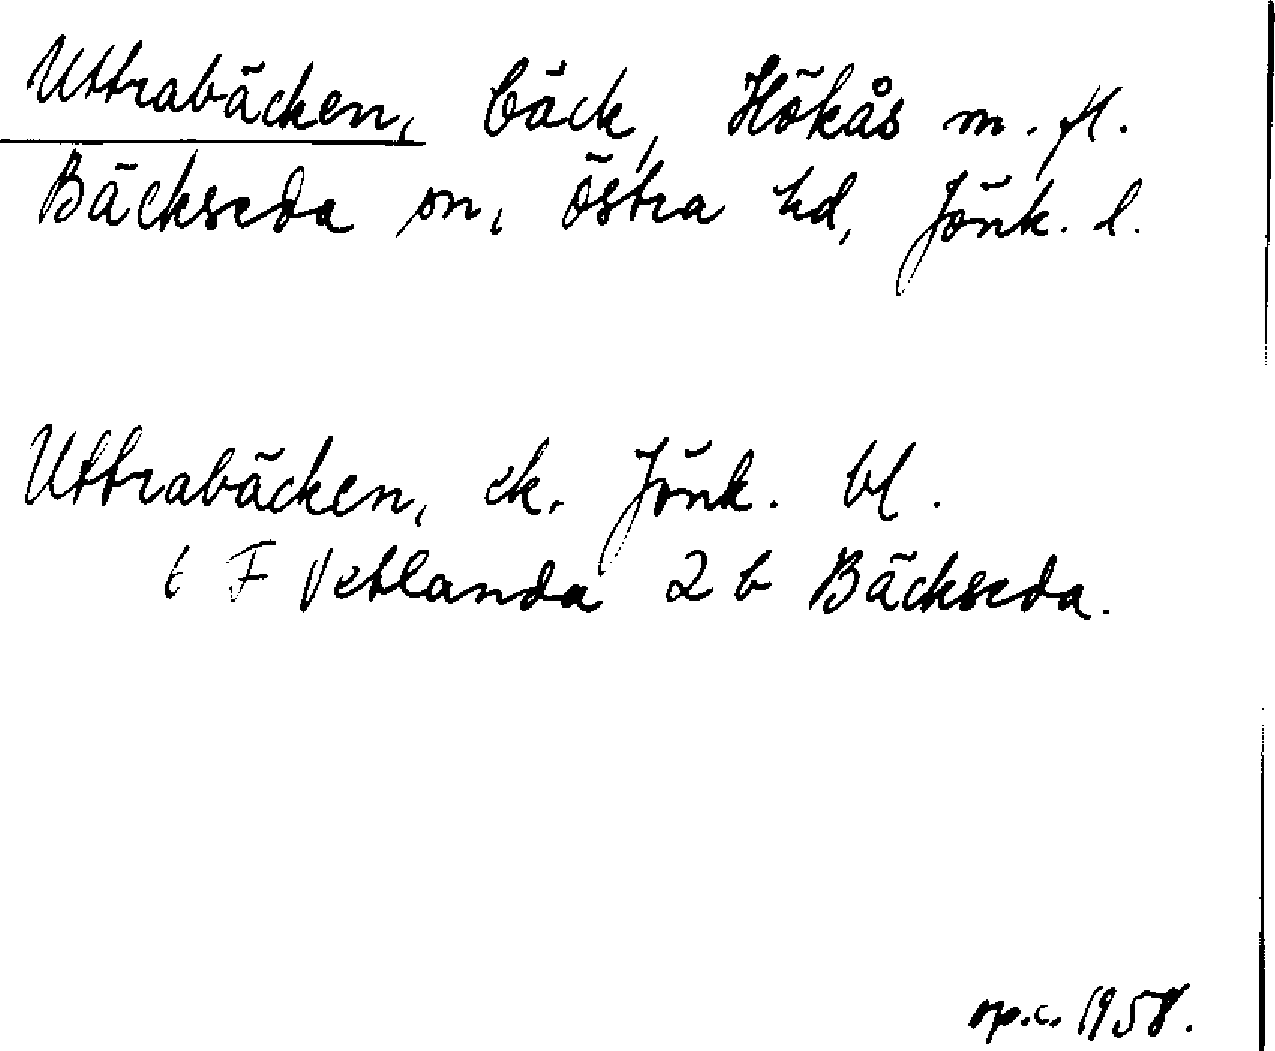 Uttrabäcken, bäck, Hökås m. fl.
Bäckseda sn, Östra hd, Jönk. l.
Uttrabäcken, ek. Jönk. bl.
6 F Vetlanda 2 b Bäckseda.
op.c. 1958.